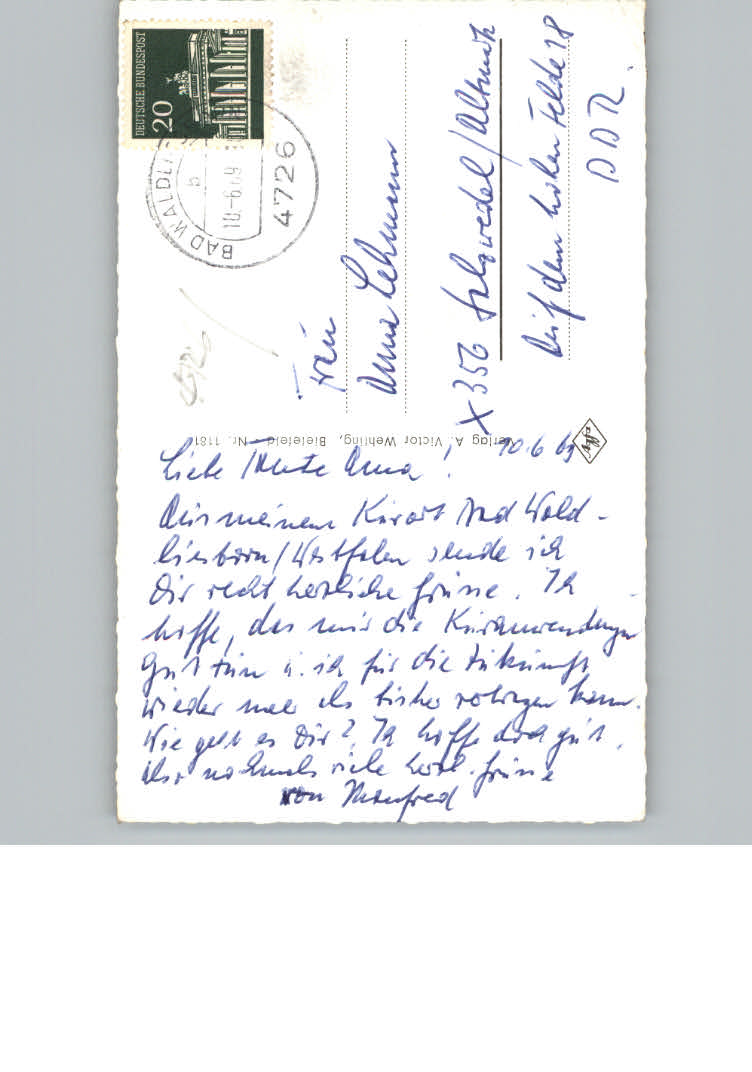 DEUTSCHE BUNDESPOST
20
BAD WALDLI
b
10.-6.69
4726
Frau
Anna Lehmann
X 356 Salzwedel/Altmark
Auf dem hohen Felde 28
DDR.
Verlag A. Victor Wehling, Bielefeld Nr. 1181
Agfa
10.6.69
Liebe Tante Anna!
Aus meinem Kurort Bad Wald-
liesborn/Westfalen sende ich
Dir recht herzliche Grüsse. Ich
hoffe, das mir die Kuranwendungen
gut tun u. ich für die Zukunft
wieder mehr als bisher kann.
Wie geht es Dir? Ich hoffe doch gut.
Also nochmals viele herzl. Grüsse
von Manfred